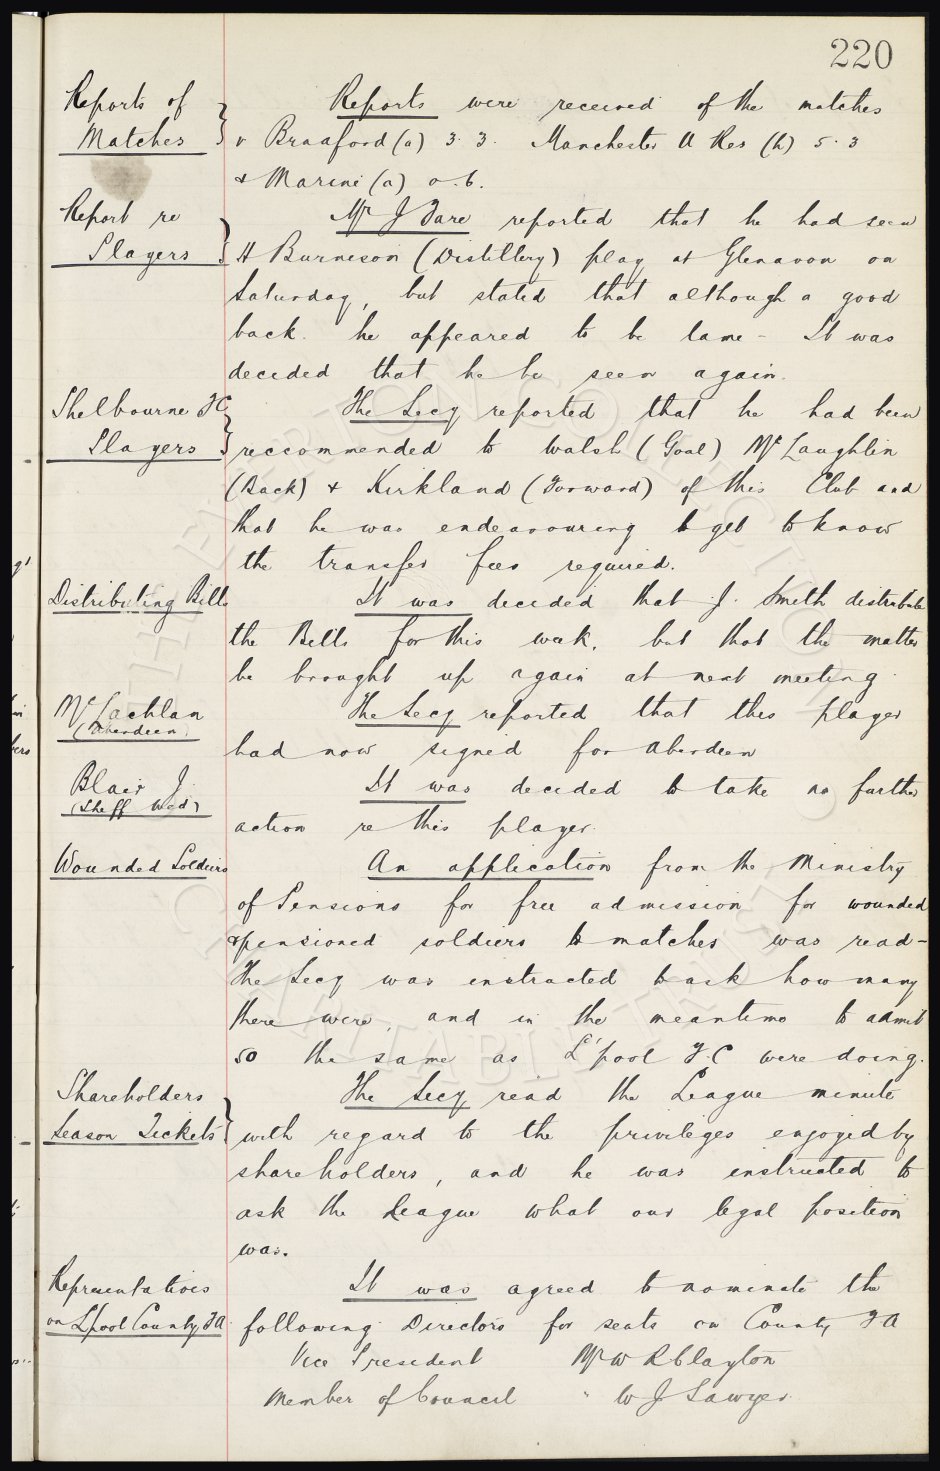 220
Reports of
Matches
Reports were received of the matches
v Bradford (a) 3.3. Manchester U Res (h) 5.3
& Marine (a) 0.6.
Report re
Players
Mr J Fare reported that he had seen
H Burneson (Distillery) play at Glenavon on
Saturday, but stated that although a good
back. he appeared to be lame - It was
decided that he be seen again.
Shelbourne FC
Players
The Secy reported that he had been
reccommended to Walsh (Goal) McLaughlin
(Back) & Kirkland (Forward) of this Club and
that he was endeavouring to get to know
the transfer fees required.
Distributing Bills
It was decided that J. Smith distribute
the Bills for this week, but that the matter
be brought up again at next meeting
McLachlan
(Aberdeen)
The Secy reported that this player
had now signed for Aberdeen
Blair J
(Sheff Wed)
It was decided to take no further
action re this player.
Wounded Soldiers
An application from the Ministry
of Pensions for free admission for wounded
& pensioned soldiers to matches was read -
The Secy was instructed to ask how many
there were, and in the meantime to admit
50 the same as L'pool F.C were doing.
Shareholders
Season Tickets
The Secy read the League minute
with regard to the privileges enjoyed by
shareholders, and he was instructed to
ask the League what our legal position
was.
Representatives
on L'pool County FA
It was agreed to nominate the
following Directors for seats on County FA
Vice President Mr W R Clayton
Member of Council " W J Sawyer.